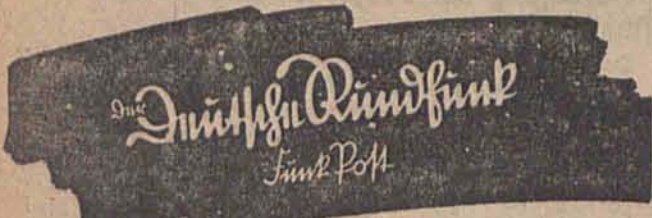 Der Deutsche Rundfunk
Funk Post